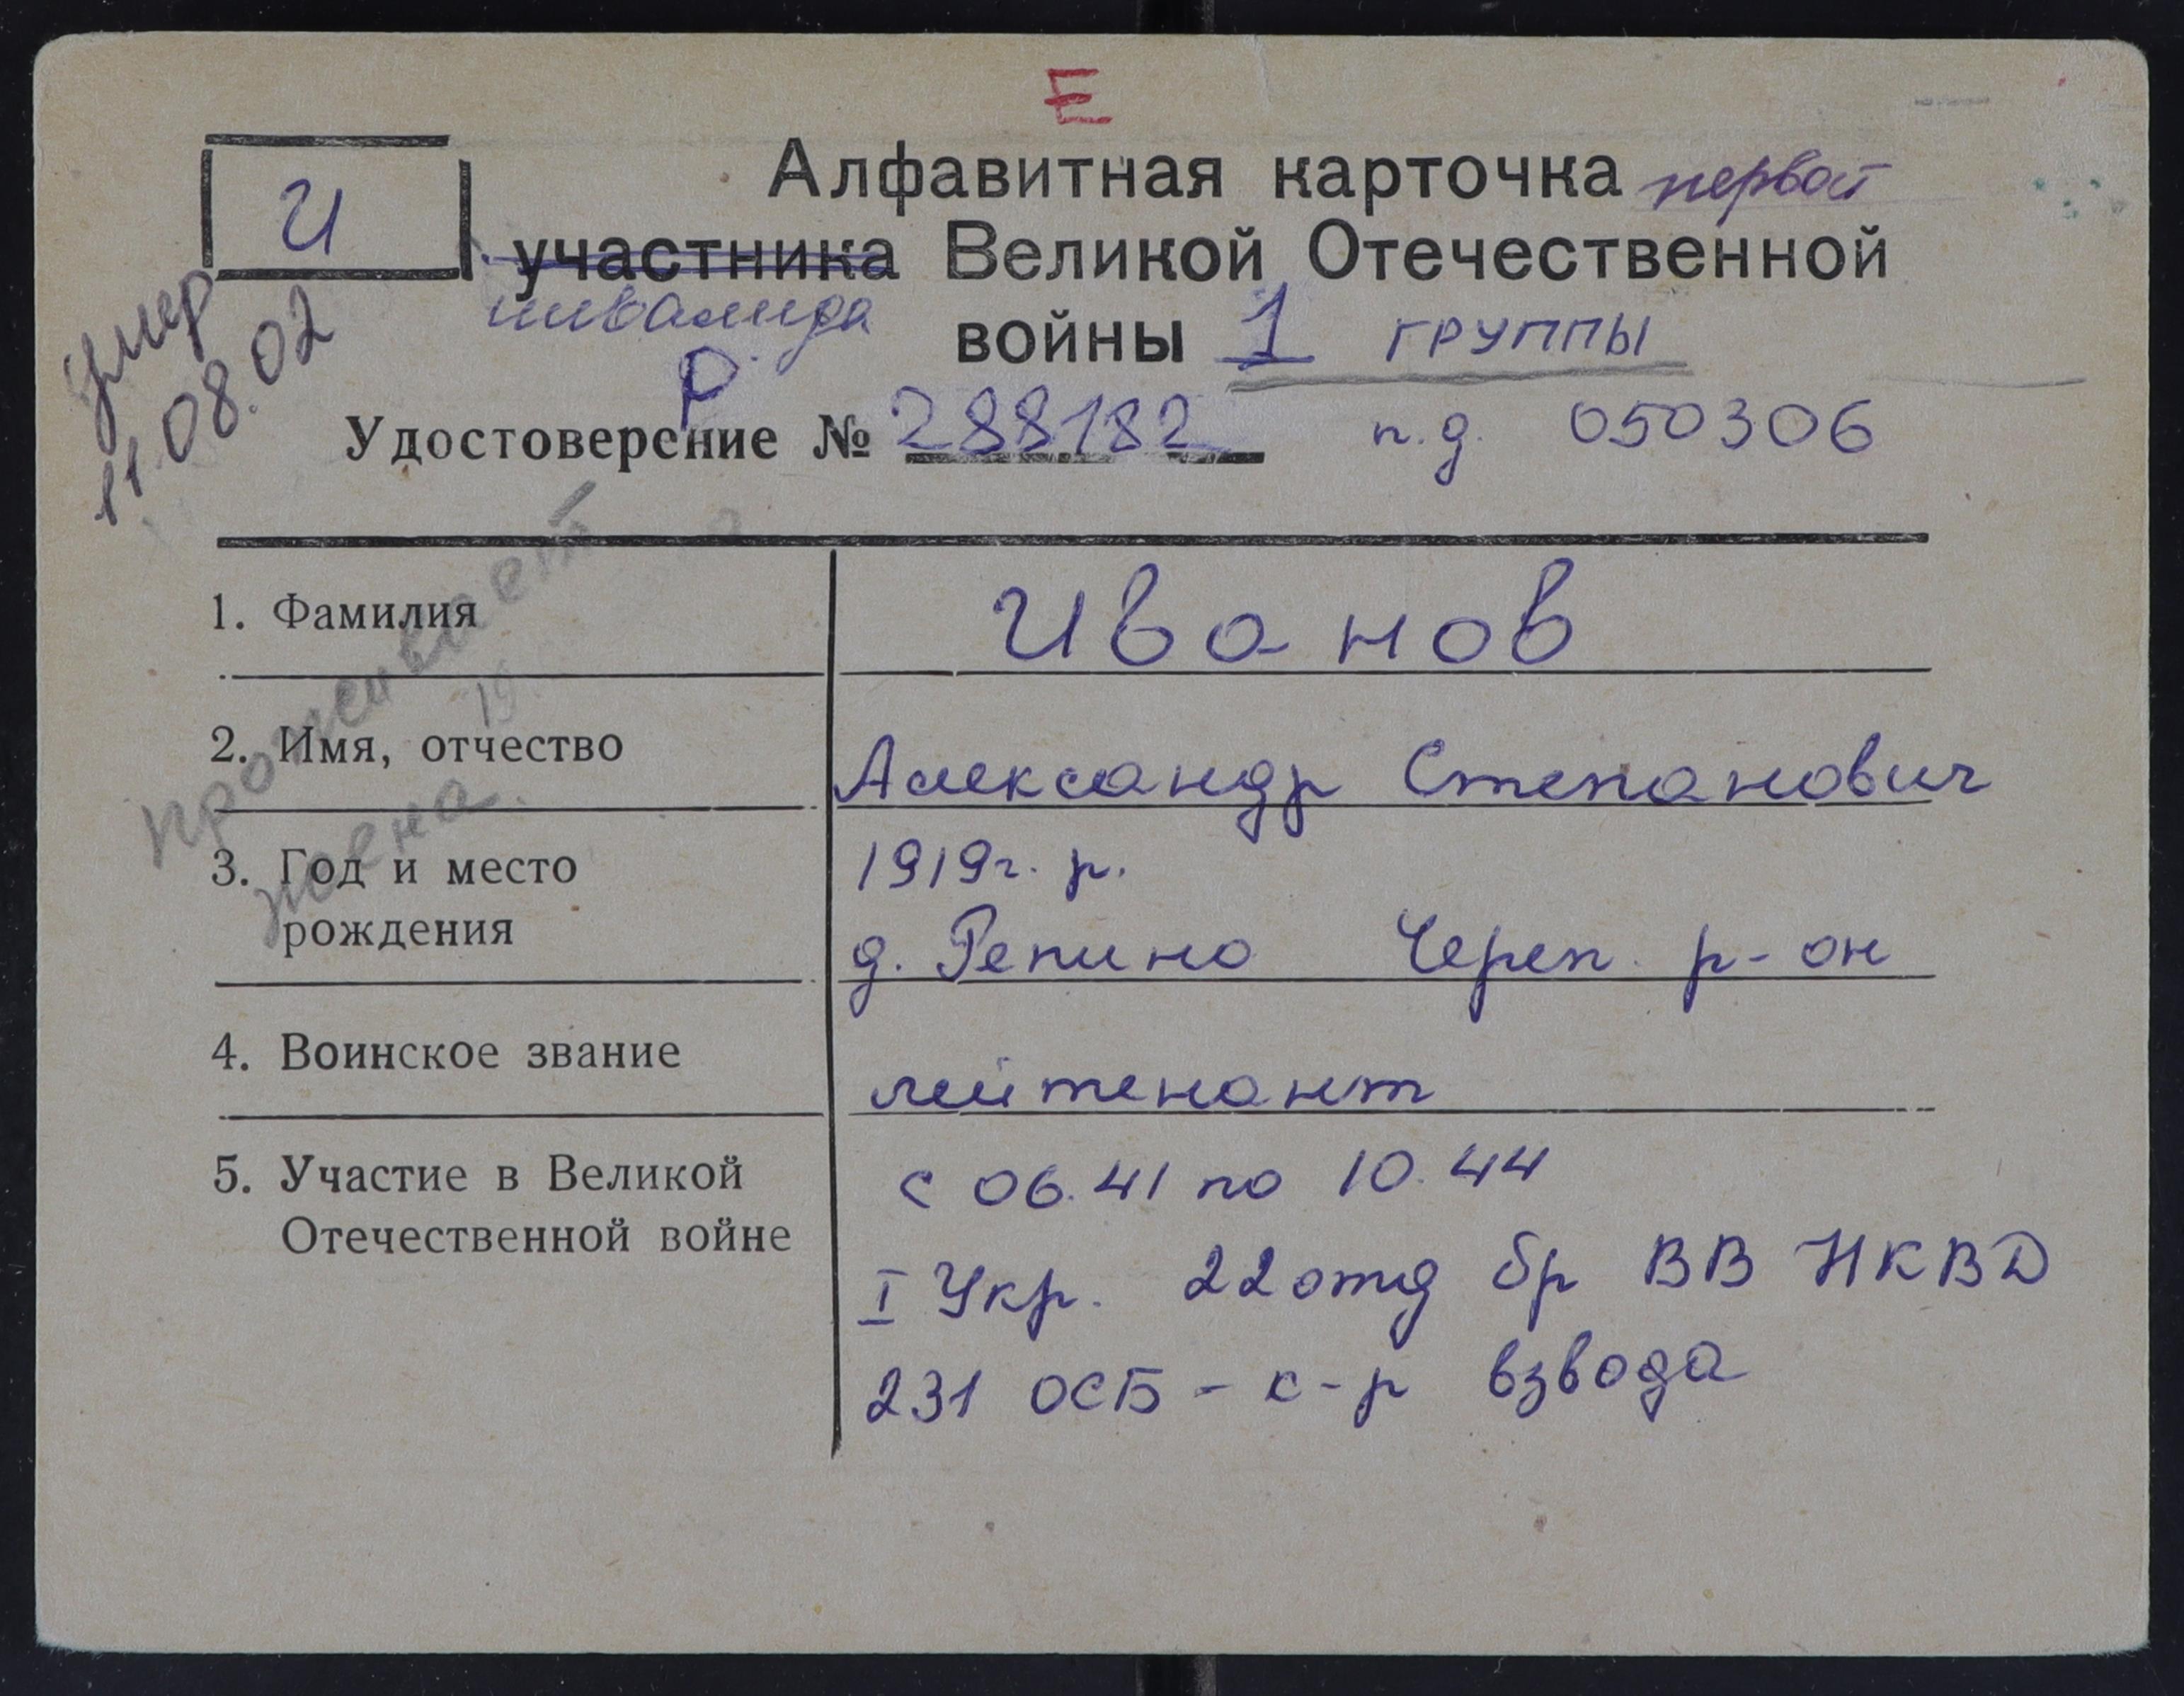 Е
Алфавитная карточка первой
И
участника Великой Отечественной
инвалида
войны 1 группы
Умер
11.08.02
Р
Удостоверение № 288182 п.д. 050306
проживает
жена
1. Фамилия Иванов
2. Имя, отчество Александр Степанович
3. Год и место 1919г. р.
рождения д. Репино Череп. р-он
4. Воинское звание лейтенант
5. Участие в Великой с 06.41 по 10.44
Отечественной войне I Укр. 22 отд бр ВВ НКВД
231 ОСБ - к-р взвода